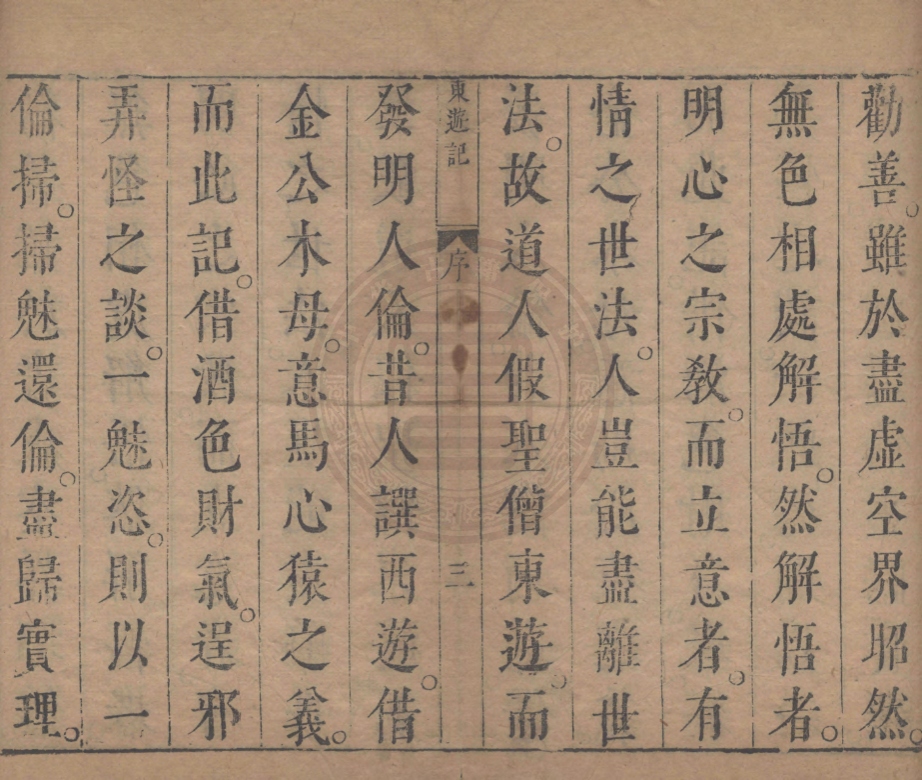 勸善。雖於盡虛空界昭然。
無色相處解悟。然解悟者。
明心之宗教。而立意者。有
情之世法。人豈能盡離世
法。故道人假聖僧東遊。而
東遊記 序 三
發明人倫。昔人譔西遊。借
金公木母。意馬心猿之義。
而此記。借酒色財氣。逞邪
弄怪之談。一魅恣。則以一
倫掃。掃魅還倫。盡歸實理。